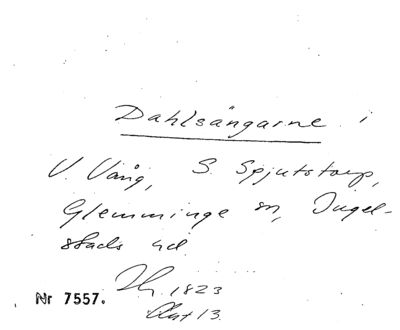 Dahlsångarne i
V. Vång, S. Spjutstorp,
Glemminge sn, Ingel-
stads hd.
1823
Nr 7557.
13.